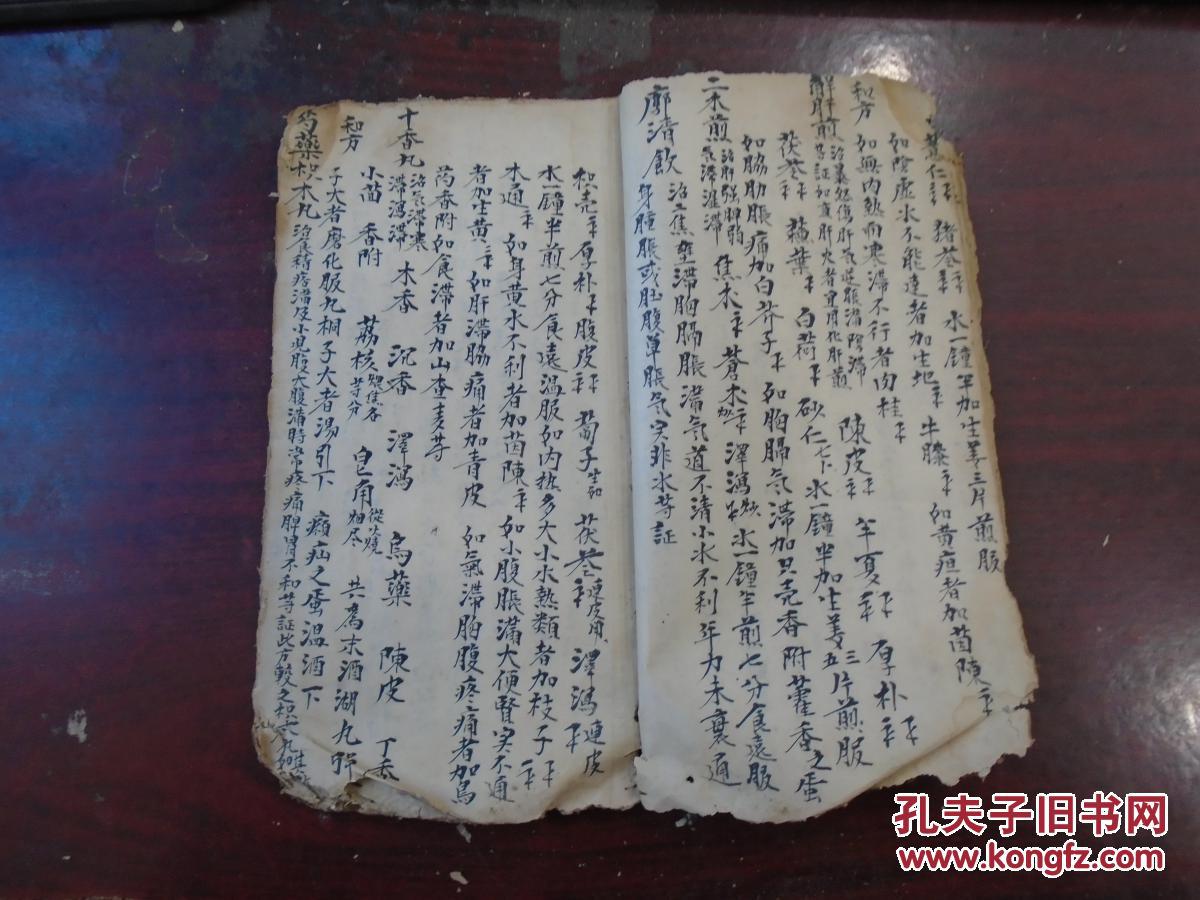 薏仁 猪苓 水一鐘半加生姜三片煎服
如陰虛水不能達者加生地 牛膝 如黄疸者加茵陳
和方 如無内熱而寒滞不行者肉桂
解肝煎 治暴怒傷肝氣逆脹滿陰滞等証如兼肝火者宜用化肝煎 陳皮 半夏 厚朴
茯苓 蘓葉 白芍 砂仁七下 水一鐘半加生姜三五片煎服
如脇肋脹痛加白芥子 如胸膈氣滞加只壳香附藿香之蛋
二术煎 治肝强脾弱氣滯濕滞 焦术 蒼术 澤瀉 水一鐘半煎七分食遠服
廓清飲 治三焦壅滞胸膈脹滿氣道不清小水不利年力未衰通
身腫脹或肚腹單脹氣实非水等証
枳壳 厚朴 腹皮 蔔子生和 茯苓連皮用 澤瀉 連皮
水一鐘半煎七分食遠温服如内热多大小水熱類者加枝子
木通 如身黄水不利者加茵陳 如小腹脹满大便堅实不通
者加生黄 如肝滞脇痛者加青皮 如氣滯胸腹疼痛者加烏
药香附如食滞者加山查麦芽
十香丸 治氣滞寒滞瀉滞 木香 沉香 澤瀉 烏藥 陳皮 丁香
和方 小茴 香附 荔核 煨焦各等分 皂角 從火燒烟尽 共為末酒湖丸弹
子大者磨化服丸桐子大者湯引下 癩疝之蛋温酒下
芍藥枳术丸 治食積痞滿及小児腹大腹满時常疼痛脾胃不和等証此方較之和六丸
孔夫子旧书网
www.kongfz.com